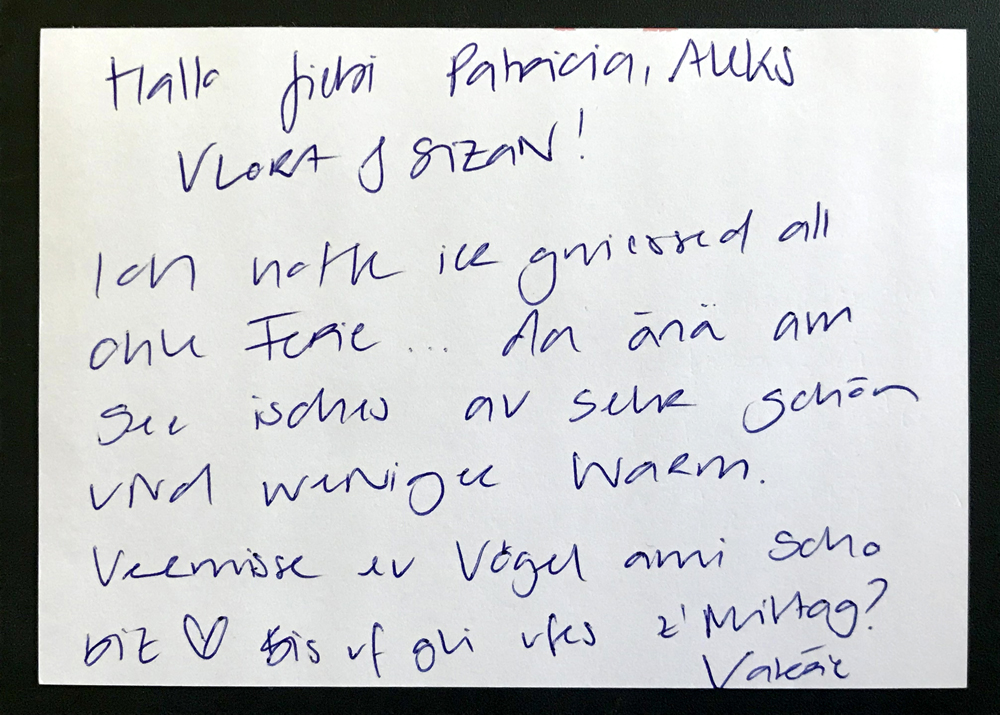 Hallo liebi Patricia, Aleks
VLORA & SIZAN!
Ich hoffe ier gniessed all
ohu Ferie ... Da änä am
See isches au sehr schön
und weniger warm.
Vermisse eu Vögel ämi scho
biz ♡ Bis uf gli ufes z'Mittag?